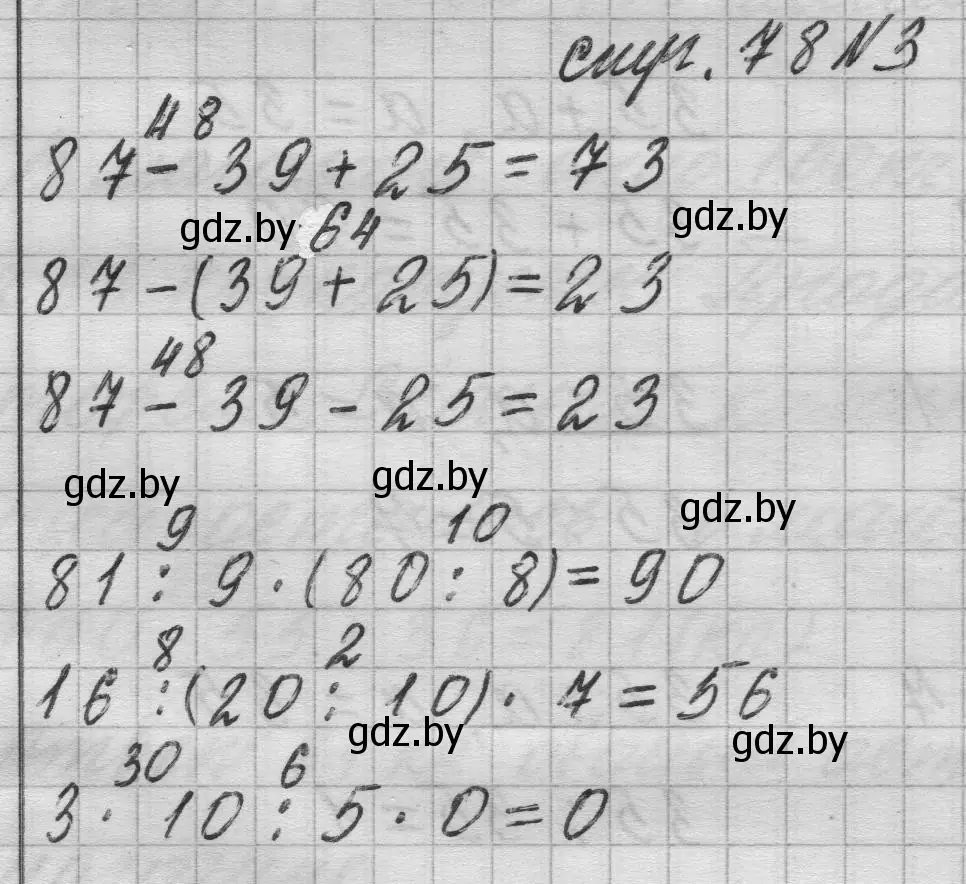 стр. 78 №3
48
87 - 39 + 25 = 73
gdz.by 64 gdz.by
87 - (39 + 25) = 23
48
87 - 39 - 25 = 23
gdz.by gdz.by gdz.by
9 10
81 : 9 · (80 : 8) = 90
8 2
16 : (20 : 10) · 7 = 56
gdz.by gdz.by
30 6
3 · 10 : 5 · 0 = 0